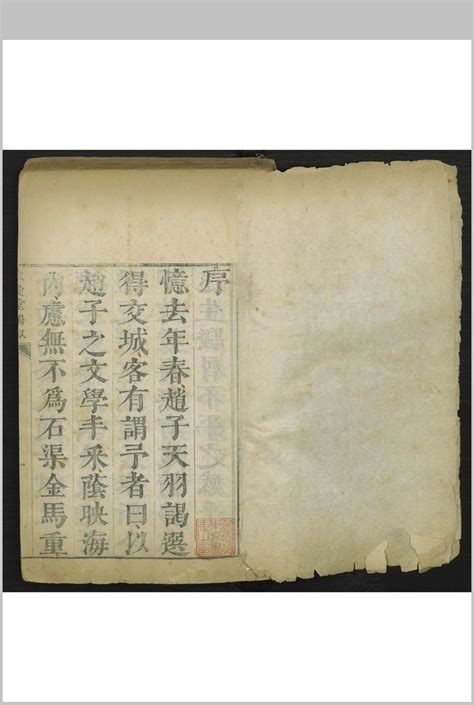 序
憶去年春趙子天羽謁選
得交城客有謂予者曰以
趙子之文學丰采蔭映海
內應無不為石渠金馬重